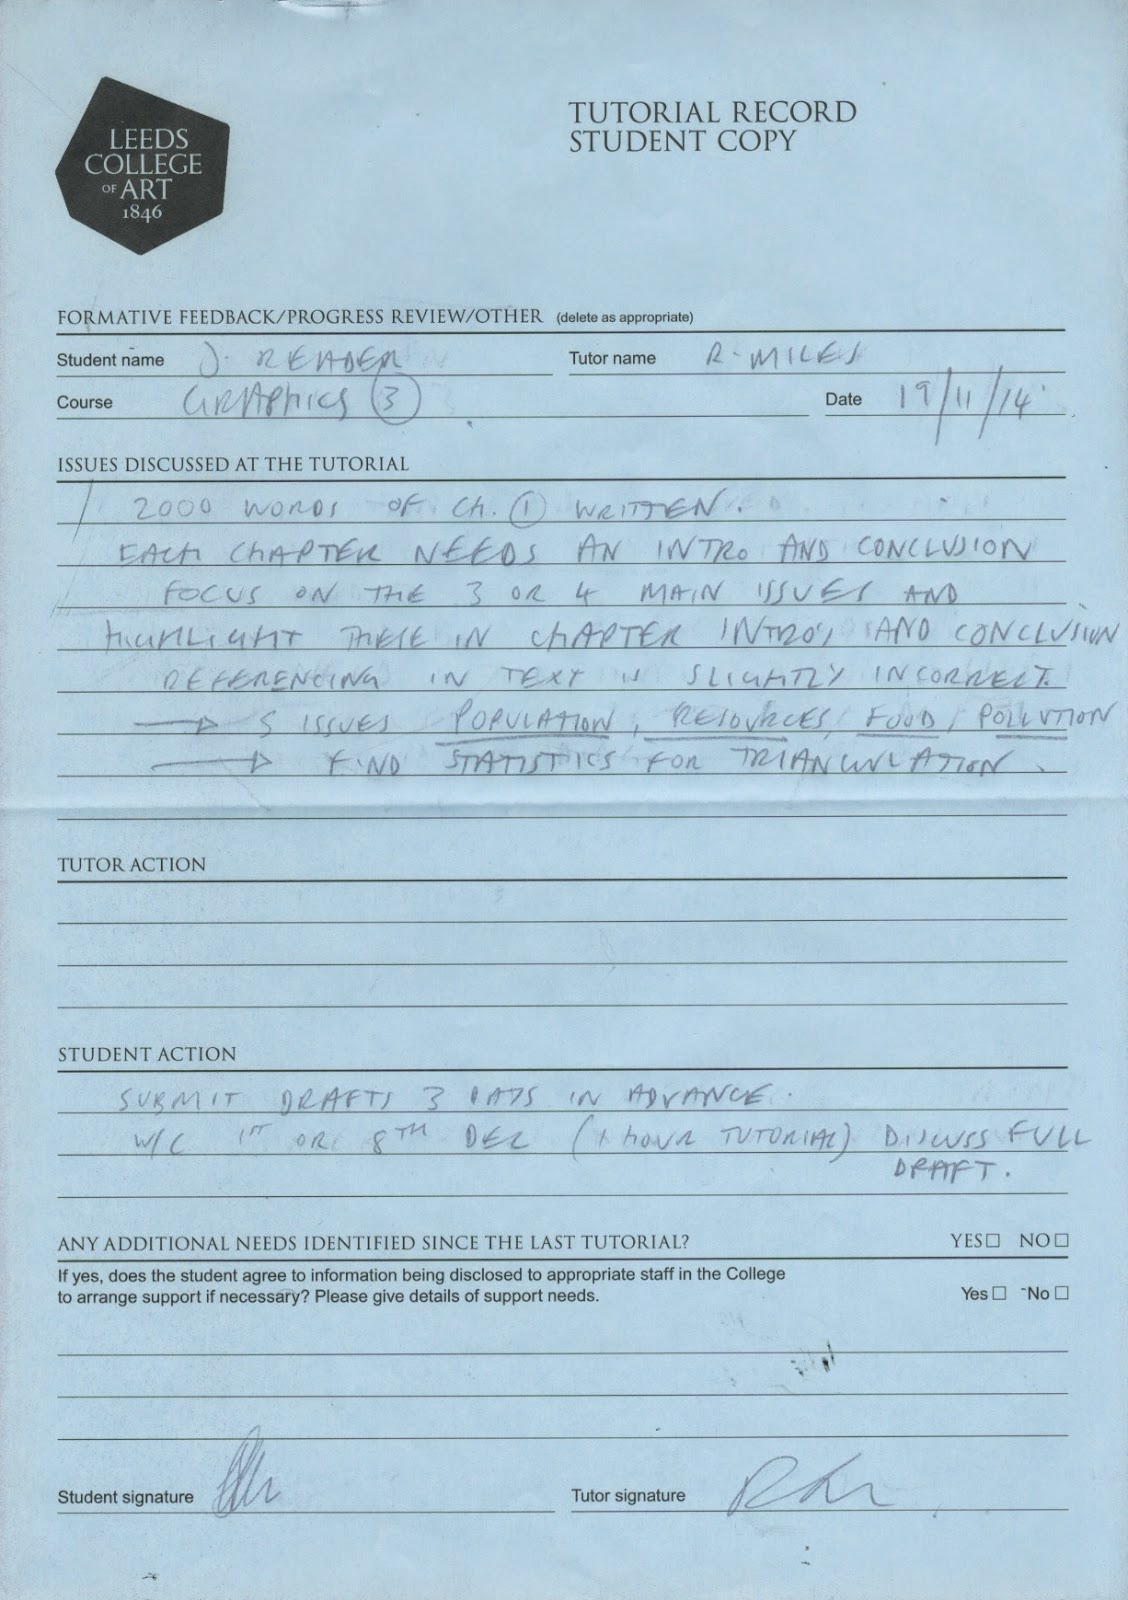 LEEDS
COLLEGE
OF ART
1846
TUTORIAL RECORD
STUDENT COPY
FORMATIVE FEEDBACK/PROGRESS REVIEW/OTHER (delete as appropriate)
Student name J. READER Tutor name R. MILES
Course GRAPHICS 3 Date 19/11/14
ISSUES DISCUSSED AT THE TUTORIAL
2000 WORDS OF CH. 1 WRITTEN.
EACH CHAPTER NEEDS AN INTRO AND CONCLUSION
FOCUS ON THE 3 OR 4 MAIN ISSUES AND
HIGHLIGHT THESE IN CHAPTER INTRO'S AND CONCLUSION
REFERENCING IN TEXT IS SLIGHTLY INCORRECT.
→ 5 ISSUES POPULATION, RESOURCES, FOOD, POLLUTION
→ FIND STATISTICS FOR TRIANGULATION.
TUTOR ACTION
STUDENT ACTION
SUBMIT DRAFTS 3 DAYS IN ADVANCE.
W/C 1ST OR 8TH DEC (1 HOUR TUTORIAL) DISCUSS FULL
DRAFT.
ANY ADDITIONAL NEEDS IDENTIFIED SINCE THE LAST TUTORIAL? YES☐ NO☐
If yes, does the student agree to information being disclosed to appropriate staff in the College
to arrange support if necessary? Please give details of support needs. Yes☐ No☐
Student signature Tutor signature